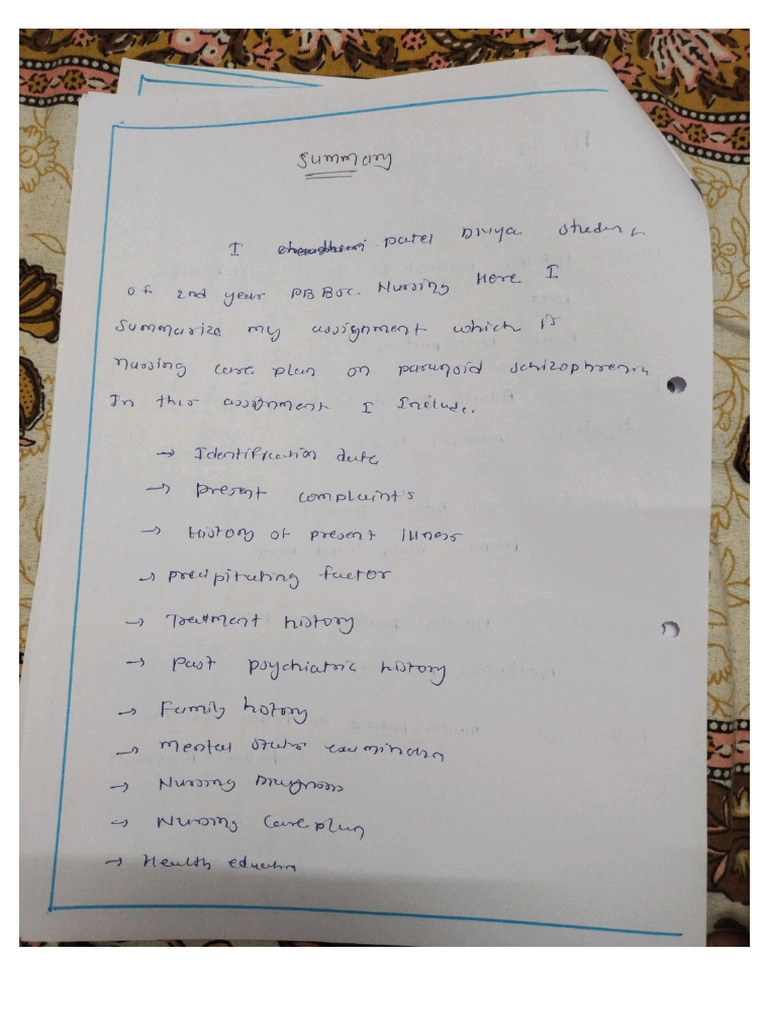 Summary
I Patel Divya student
of 2nd year P.B BSc. Nursing Here I
Summarize my assignment which is
nursing care plan on paranoid schizophrenia
In this assignment I Include.
→ Identification data
→ Present complaint's
→ History of present illness
→ precipitating factor
→ Treatment history
→ Past psychiatric history
→ Family history
→ mental status examination
→ Nursing Diagnosis
→ Nursing Care plan
→ Health education